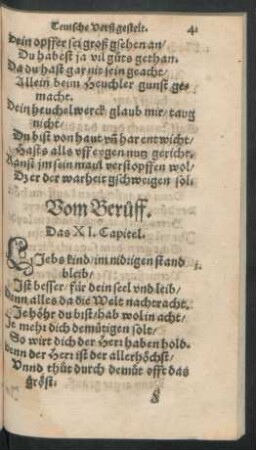 Teutsche Verß gestelt. 41
Dein opffer sei groß gsehen an/
Du habest ja vil guts gethan.
Da du hast gar nit sein geacht/
Allein beim Heuchler gunst ge-
macht.
Dein heuchelwerck glaub mir/ taug
nicht/
Du bist von haut vñ har entwicht/
Hasts alls vff eygen nutz gericht.
Kanst jm sein maul verstopffen wol/
Dz er der warheit gschweigen sol.
Vom Berüff.
Das XI. Capitel.
LIebs kind/ im nidrigen stand 1.
bleib/
Ist besser/ für dein seel vnd leib/
Denn alles da die Welt nachtracht.
Je höhr du bist/ hab wol in acht/
Je mehr dich demütigen solt/
So wirt dich der Herr haben hold.
Denn der Herr ist der allerhöchst/
Vnnd thůt durch demůt offt das
gröst.